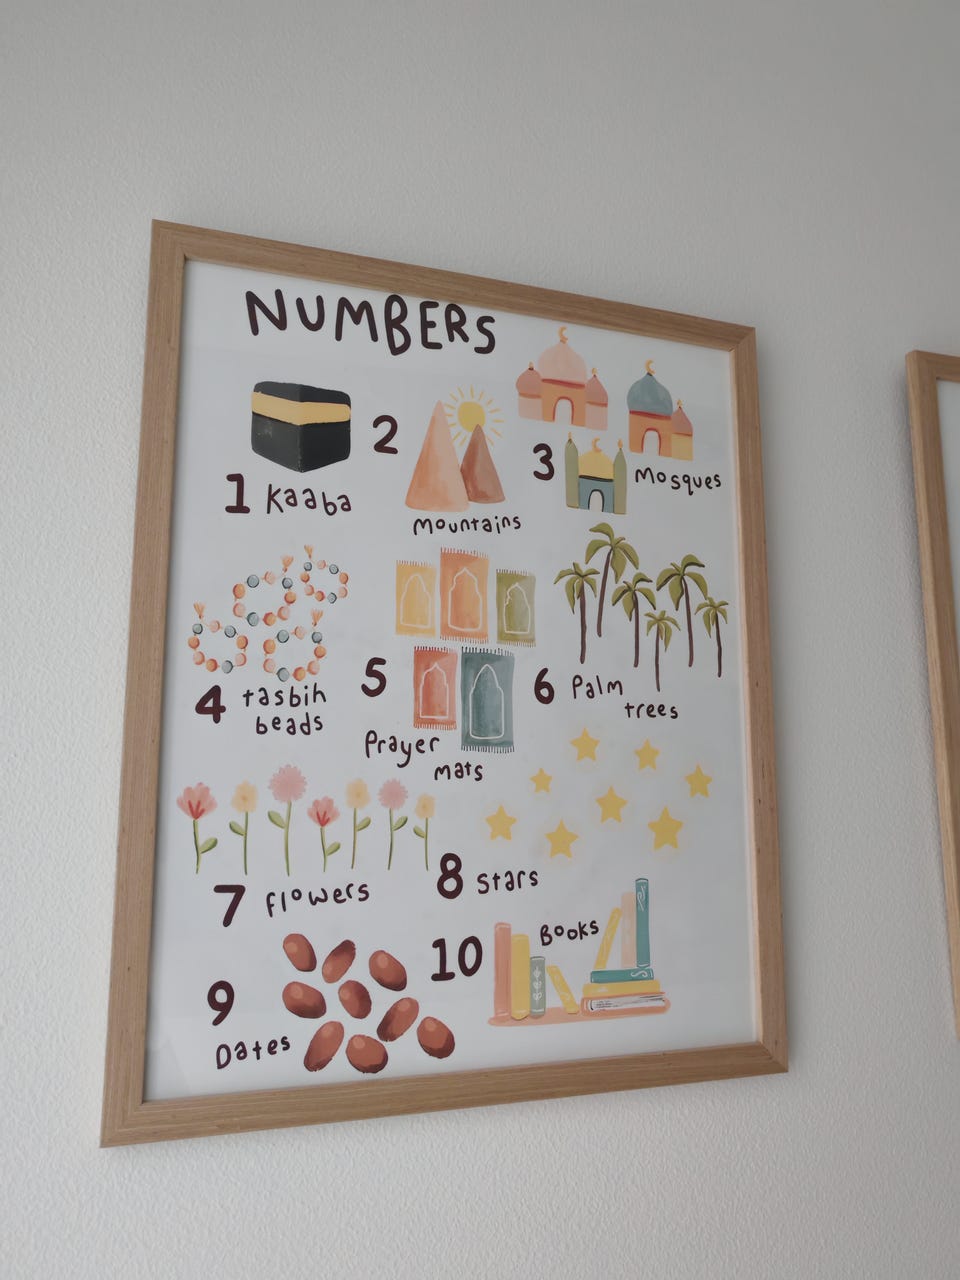 NUMBERS
1 Kaaba
2
Mountains
3 Mosques
4 tasbih
beads
5
Prayer
mats
6 Palm
trees
7 Flowers
8 Stars
9
Dates
10 Books